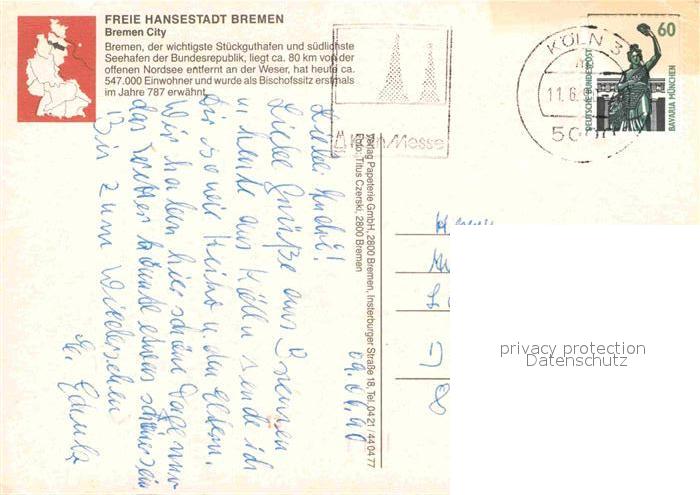 FREIE HANSESTADT BREMEN
Bremen City
Bremen, der wichtigste Stückguthafen und südlichste
Seehafen der Bundesrepublik, liegt ca. 80 km von der
offenen Nordsee entfernt an der Weser, hat heute ca.
547.000 Einwohner und wurde als Bischofssitz erstmals
im Jahre 787 erwähnt.
Messe
KÖLN 3
11.6.
DEUTSCHE BUNDESPOST
60
BAVARIA MÜNCHEN
Verlag Papeterie GmbH, 2800 Bremen, Insterburger Straße 18, Tel. 04 21 / 44 04 77
Foto: Titus Czerski, 2800 Bremen
09.06.90
Liebe
Liebe Grüße aus Bremen
u. heute aus Köln sende ich
Dir sowie u. den Eltern.
Wir haben hier schöne Tage nur
das Wetter könnte etwas schöner sein
Bis zum Wiedersehen
privacy protection
Datenschutz